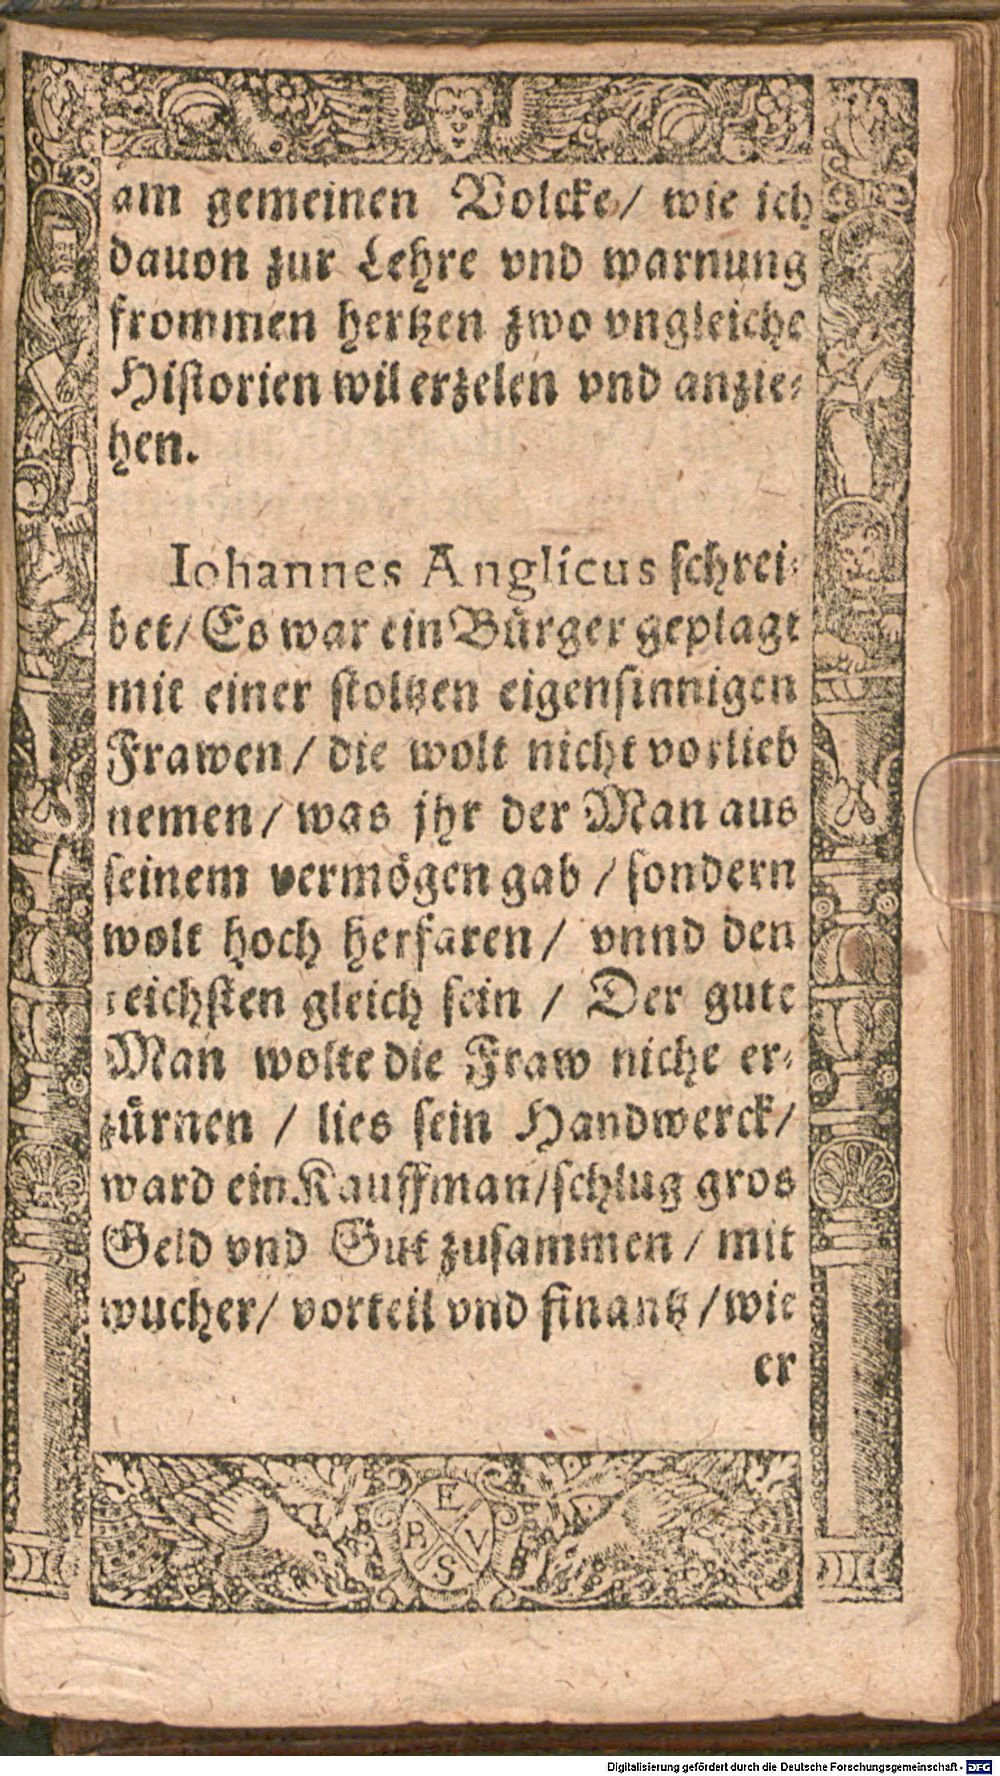 am gemeinen Volcke/ wie ich
dauon zur Lehre vnd warnung
frommen hertzen zwo vngleiche
Historien wil erzelen vnd anzie-
hen.
Iohannes Anglicus schrei-
bet/ Es war ein Bürger geplagt
mit einer stoltzen eigensinnigen
Frawen/ die wolt nicht vorlieb
nemen/ was jhr der Man aus
seinem vermögen gab / sondern
wolt hoch herfaren/ vnnd den
reichsten gleich sein / Der gute
Man wolte die Fraw nicht er-
zürnen / lies sein Handwerck/
ward ein Kauffman/schlug gros
Geld vnd Gut zusammen / mit
wucher/ vorteil vnd finantz /wie
er
E
R V
S
Digitalisierung gefördert durch die Deutsche Forschungsgemeinschaft - DFG